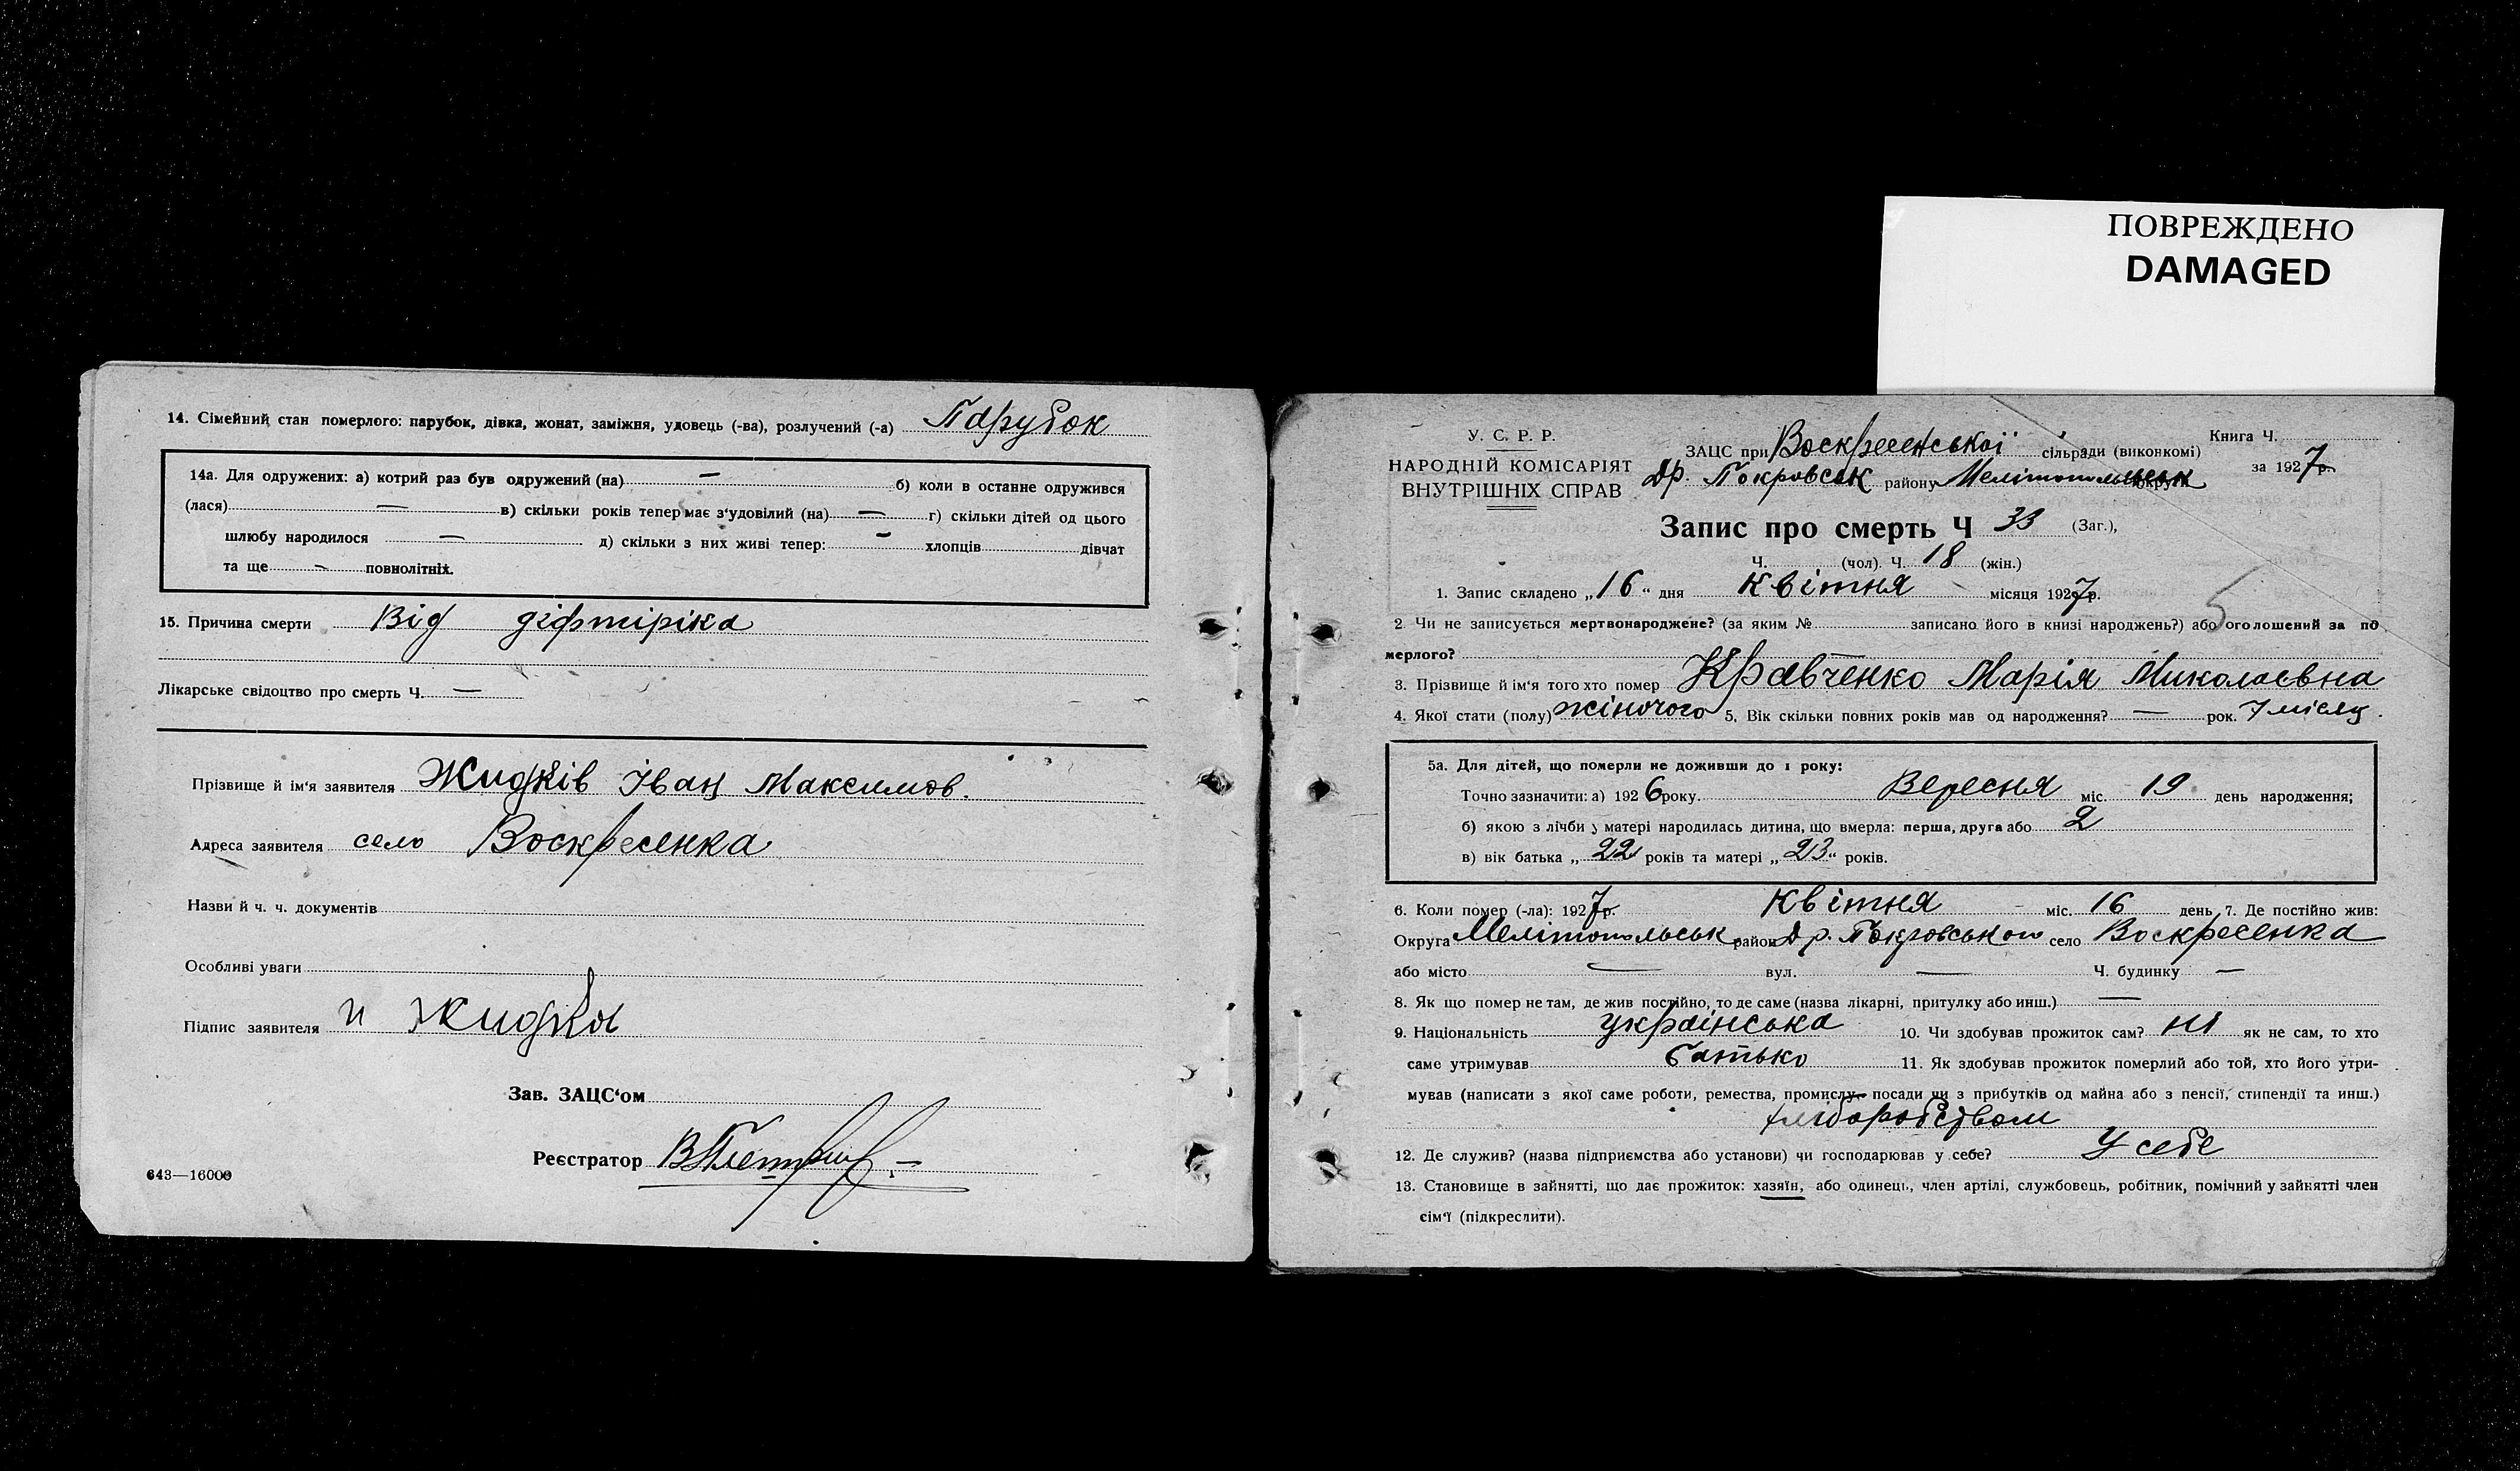 ПОВРЕЖДЕНО
DAMAGED
14. Сімейний стан померлого: парубок, дівка, жонат, заміжня, удовець (-ва), розлучений (-а) Парубок
14а. Для одружених: а) котрий раз був одружений (на) — б) коли в останне одружився
(лася) — в) скільки років тепер має з'удовілий (на) — г) скільки дітей од цього
шлюбу народилося — д) скільки з них живі тепер: — хлопців дівчат
та ще — повнолітніх.
15. Причина смерти Від діфтіріка
Лікарське свідоцтво про смерть Ч. —
Прізвище й ім'я заявителя Жидків Іван Максимов.
Адреса заявителя село Воскресенка
Назви й ч. ч. документів
Особливі уваги
Підпис заявителя И Жидков
Зав. ЗАЦС'ом
Реєстратор
643—16000
У. С. Р. Р.
НАРОДНІЙ КОМІСАРІЯТ
ВНУТРІШНІХ СПРАВ
Книга Ч.
ЗАЦС при Воскресенської сільради (виконкомі)
за 1927 р.
Др. Покровськ району Мелітопольськ округи
Запис про смерть Ч 33 (Заг.),
Ч. (чол). Ч. 18 (жін.)
1. Запис складено „16" дня Квітня місяця 1927 р.
5
2 Чи не записується мертвонароджене? (за яким № записано його в книзі народжень?) або оголошений за по
мерлого? —
3. Прізвище й ім'я того хто помер Кравченко Марія Миколаєвна
4. Якої стати (полу) жіночого 5. Вік скільки повних років мав од народження? — рок. 7 місяц.
5а. Для дітей, що померли не доживши до 1 року:
Точно зазначити: а) 1926 року. Вересня міс. 19 день народження;
б) якою з лічби у матері народилась дитина, що вмерла: перша, друга або 2
в) вік батька „22" років та матері „23" років.
6. Коли помер (-ла): 1927 р. Квітня міс. 16 день 7. Де постійно жив:
Округа Мелітопольськ район Др. Покровського село Воскресенка
або місто — вул. — Ч. будинку —
8. Як що помер не там, де жив постійно, то де саме (назва лікарні, притулку або инш.) —
9. Національність українська 10. Чи здобував прожиток сам? ні як не сам, то хто
саме утримував батько 11. Як здобував прожиток померлий або той, хто його утри-
мував (написати з якої саме роботи, ремества, промислу, посади чи з прибутків од майна або з пенсії, стипендії та инш.)
хліборобством
12. Де служив? (назва підприємства або установи) чи господарював у себе? У себе
13. Становище в зайнятті, що дає прожиток: хазяїн, або одинець, член артілі, службовець, робітник, помічний у зайнятті член
сім'ї (підкреслити).